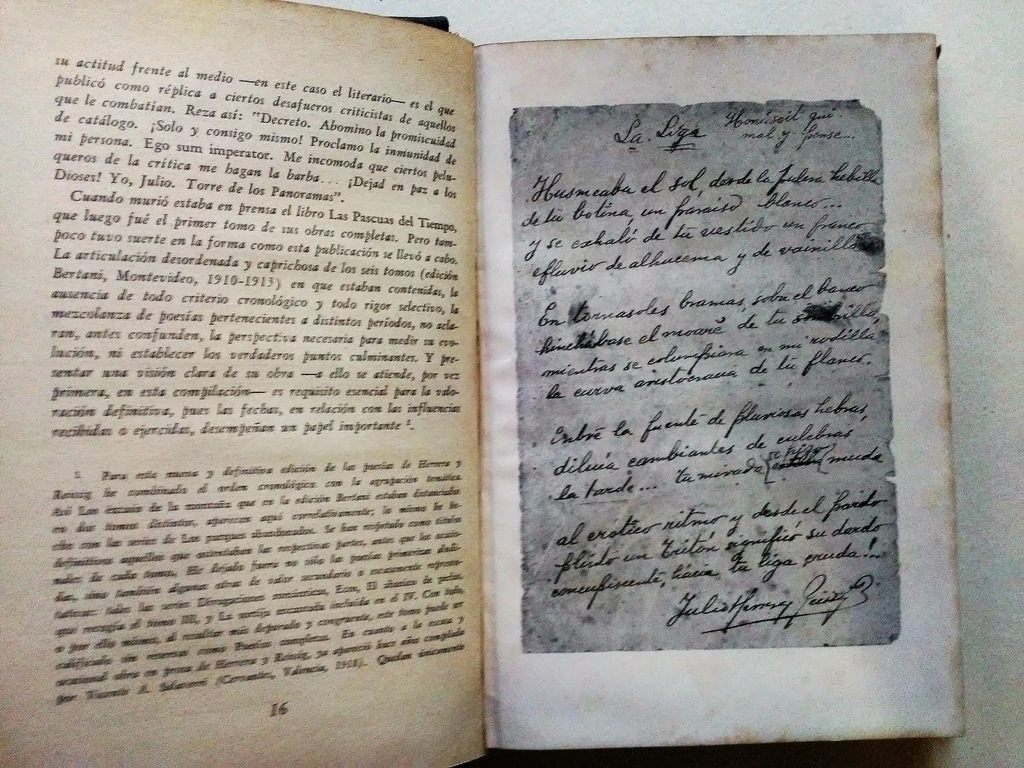 su actitud frente al medio —en este caso el literario— es el que
publicó como réplica a ciertos desafueros criticistas de aquellos
que le combatían. Reza así: "Decreto. Abomino la promiscuidad
de catálogo. ¡Solo y consigo mismo! Proclamo la inmunidad de
mi persona. Ego sum imperator. Me incomoda que ciertos pelu-
queros de la crítica me hagan la barba... ¡Dejad en paz a los
Dioses! Yo, Julio. Torre de los Panoramas".
Cuando murió estaba en prensa el libro Las Pascuas del Tiempo,
que luego fué el primer tomo de sus obras completas. Pero tam-
poco tuvo suerte en la forma como esta publicación se llevó a cabo.
La articulación desordenada y caprichosa de los seis tomos (edición
Bertani, Montevideo, 1910-1913) en que estaban contenidas, la
ausencia de todo criterio cronológico y todo rigor selectivo, la
mezcolanza de poesías pertenecientes a distintos períodos, no acla-
ran, antes confunden, la perspectiva necesaria para medir su evo-
lución, ni establecer los verdaderos puntos culminantes. Y pre-
sentar una visión clara de su obra —a ello se atiende, por vez
primera, en esta compilación— es requisito esencial para la valo-
ración definitiva, pues las fechas, en relación con las influencias
recibidas o ejercidas, desempeñan un papel importante ¹.
1. Para esta nueva y definitiva edición de las poesías de Herrera y
Reissig he combinado el orden cronológico con la agrupación temática.
Así Los éxtasis de la montaña que en la edición Bertani estaban distanciados
en dos tomos distintos, aparecen aquí correlativamente; lo mismo he he-
cho con las series de Los parques abandonados. Se han respetado como títulos
definitivos aquellos que ostentaban las respectivas partes, antes que los
de cada tomo. He dejado fuera no sólo las poesías primerizas
sino también algunas otras de valor secundario o escasamente
todas las series
que recogía el tomo III, y La sortija encantada incluida en el IV. Con todo,
por ello mismo, al resultar más depurado y congruente, este tomo puede ser
calificado sin reservas como Poesías completas. En cuanto a la escasa y
ocasional obra en prosa de Herrera y Reissig, ya apareció hace años compilada
por Vicente A. Salaverri (Cervantes, Valencia, 1918). Quedan únicamente
16
La Liga
Honi soit qui
mal y pense...
Husmeaba el sol, desde la pulcra hebilla
de tu botina, un paraíso blanco...
y se exhaló de tu vestido un franco
efluvio de alhucema y de vainilla
En tornasoles bramas, sobre el banco
hinchábase el moaré de tu sombrilla,
mientras se columpiara en mi rodilla
la curva aristocracia de tu flanco.
Entre la fuente de pluviosas hebras,
diluía cambiantes de culebras
la tarde... tu mirada se hizo muda
al erótico ritmo y desde el pardo
plinto un Tritón significó su dardo
concupiscente, hacia tu liga cruda!..
Julio Herrera y Reissig